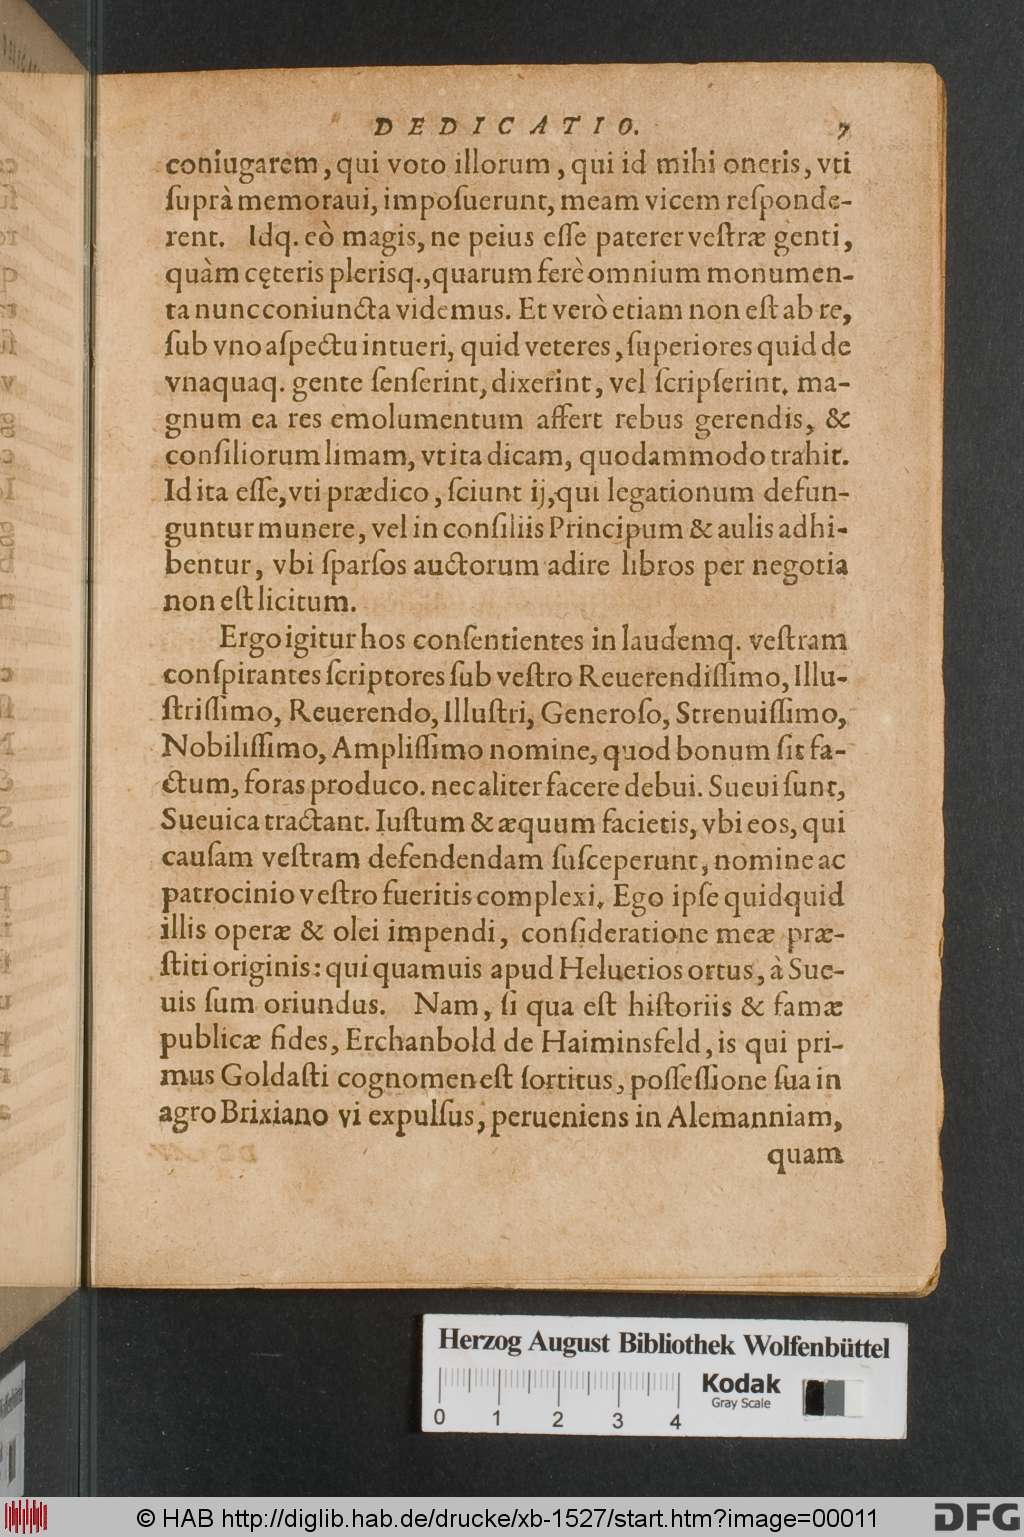 DEDICATIO. 7
coniugarem, qui voto illorum, qui id mihi oneris, vti
ſuprà memoraui, impoſuerunt, meam vicem reſponde-
rent. Idq. eò magis, ne peius eſſe paterer veſtræ genti,
quàm cęteris plerisq., quarum ferè omnium monumen-
ta nunc coniuncta videmus. Et verò etiam non eſt ab re,
ſub vno aſpectu intueri, quid veteres, ſuperiores quid de
vnaquaq. gente ſenſerint, dixerint, vel ſcripſerint. ma-
gnum ea res emolumentum affert rebus gerendis, &
conſiliorum limam, vt ita dicam, quodammodo trahit.
Id ita eſſe, vti prædico, ſciunt ij, qui legationum defun-
guntur munere, vel in conſiliis Principum & aulis adhi-
bentur, vbi ſparſos auctorum adire libros per negotia
non eſt licitum.
Ergo igitur hos conſentientes in laudemq. veſtram
conſpirantes ſcriptores ſub veſtro Reuerendiſſimo, Illu-
ſtriſſimo, Reuerendo, Illuſtri, Generoſo, Strenuiſſimo,
Nobiliſſimo, Ampliſſimo nomine, quod bonum ſit fa-
ctum, foras produco. nec aliter facere debui. Sueui ſunt,
Sueuica tractant. Iuſtum & æquum facietis, vbi eos, qui
cauſam veſtram defendendam ſuſceperunt, nomine ac
patrocinio veſtro fueritis complexi. Ego ipſe quidquid
illis operæ & olei impendi, conſideratione meæ præ-
ſtiti originis: qui quamuis apud Heluetios ortus, à Sue-
uis ſum oriundus. Nam, ſi qua eſt hiſtoriis & famæ
publicæ fides, Erchanbold de Haiminsfeld, is qui pri-
mus Goldaſti cognomen eſt ſortitus, poſſeſſione ſua in
agro Brixiano vi expulſus, perueniens in Alemanniam,
quam
Herzog August Bibliothek Wolfenbüttel
Kodak
Gray Scale
0 1 2 3 4
© HAB http://diglib.hab.de/drucke/xb-1527/start.htm?image=00011
DFG